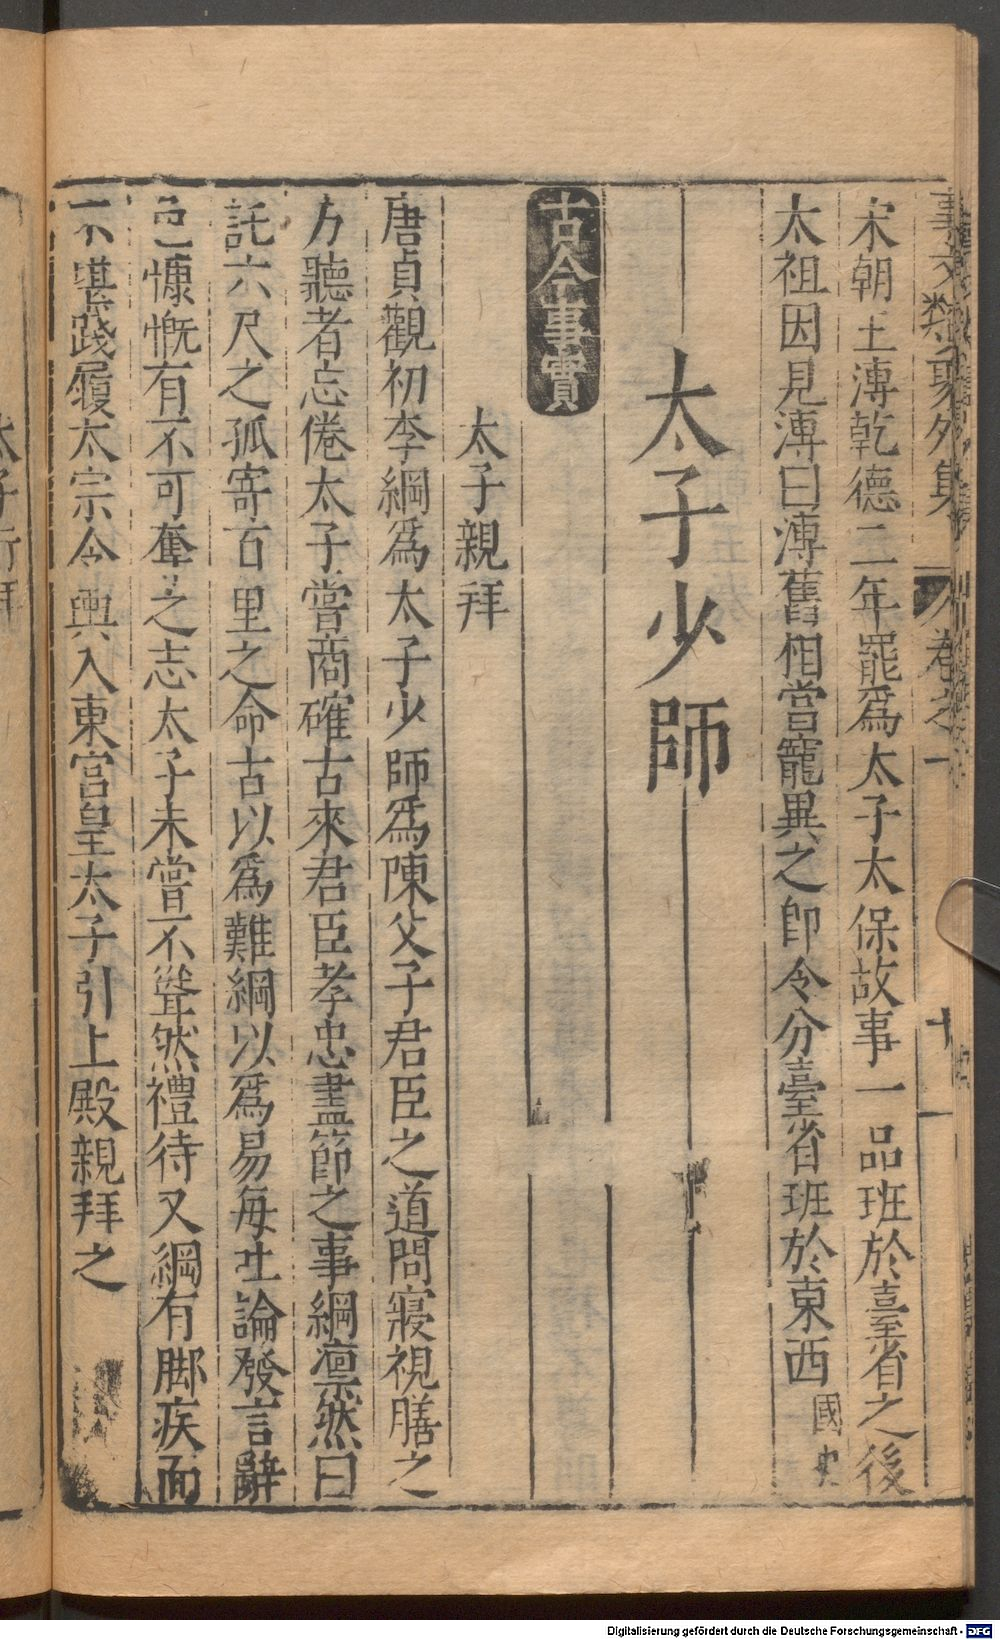 事文類聚外集
卷之一
宋朝王溥乾德二年罷爲太子太保故事一品班於臺省之後
太祖因見溥曰溥舊相當寵異之卽令分臺省班於東西國史
太子少師
古今事實
太子親拜
唐貞觀初李綱爲太子少師爲陳父子君臣之道問寢視膳之
方聽者忘倦太子嘗商確古來君臣孝忠盡節之事綱凛然曰
託六尺之孤寄百里之命古以爲難綱以爲易每吐論發言辭
色慷慨有不可奪之志太子未嘗不聳然禮待又綱有脚疾面
不堪踐履太宗令輿入東宫皇太子引上殿親拜之
Digitalisierung gefördert durch die Deutsche Forschungsgemeinschaft - DFG